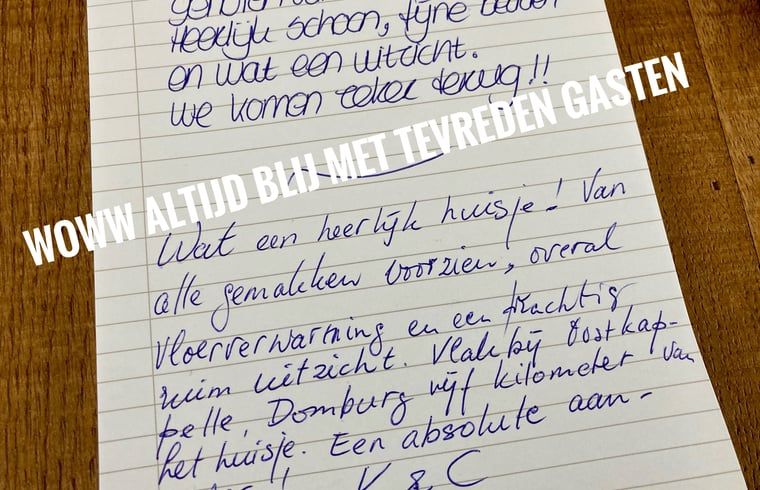 Heerlijk schoon, fijne bedden
en wat een uitzicht.
We komen zeker terug!!
WOWW ALTIJD BLIJ MET TEVREDEN GASTEN
Wat een heerlijk huisje! Van
alle gemakken voorzien, overal
vloerverwarming en een prachtig
ruim uitzicht. Vlak bij Oostkap-
pelle, Domburg vijf kilometer van
het huisje. Een absolute aan-
V & C